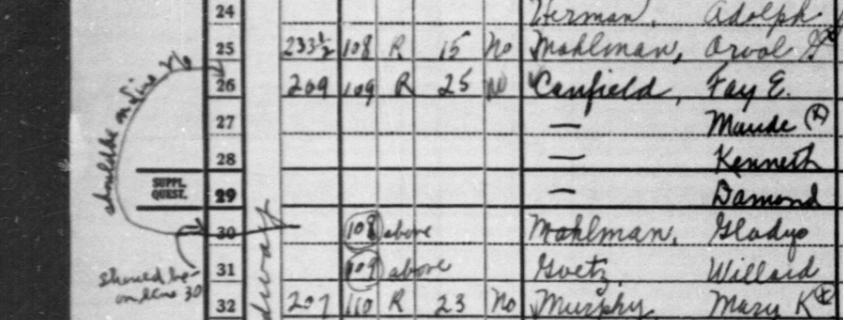 24 Herman, Adolph
25 233½ 108 R 15 No Mohlman, Orval
26 209 109 R 25 No Canfield, Fay E.
27 — Maude (X)
28 — Kenneth
SUPPL. QUEST. 29 — Damond
30 108 above Mohlman, Gladys
31 109 above Goetz, Willard
32 207 110 R 23 No Murphy, Mary K (X)
should be on line No
should be on line 30